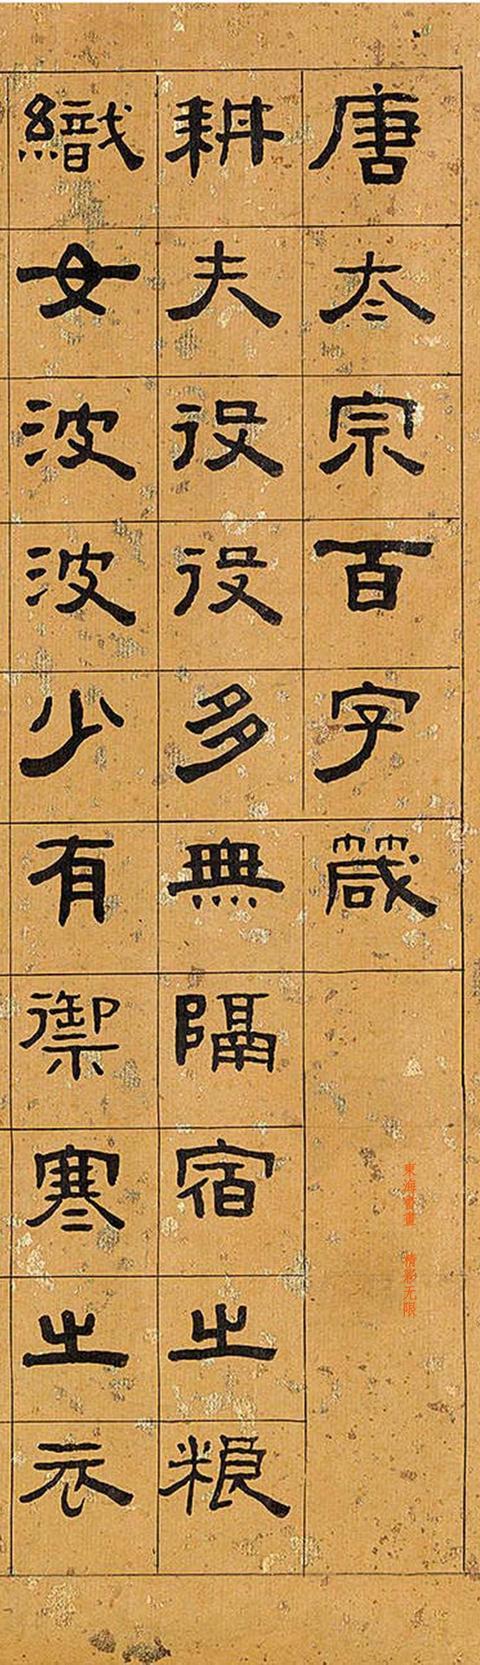 唐太宗百字箴
耕夫役役多無隔宿之粮
織女波波少有禦寒之衣
東海書畫 精彩无限